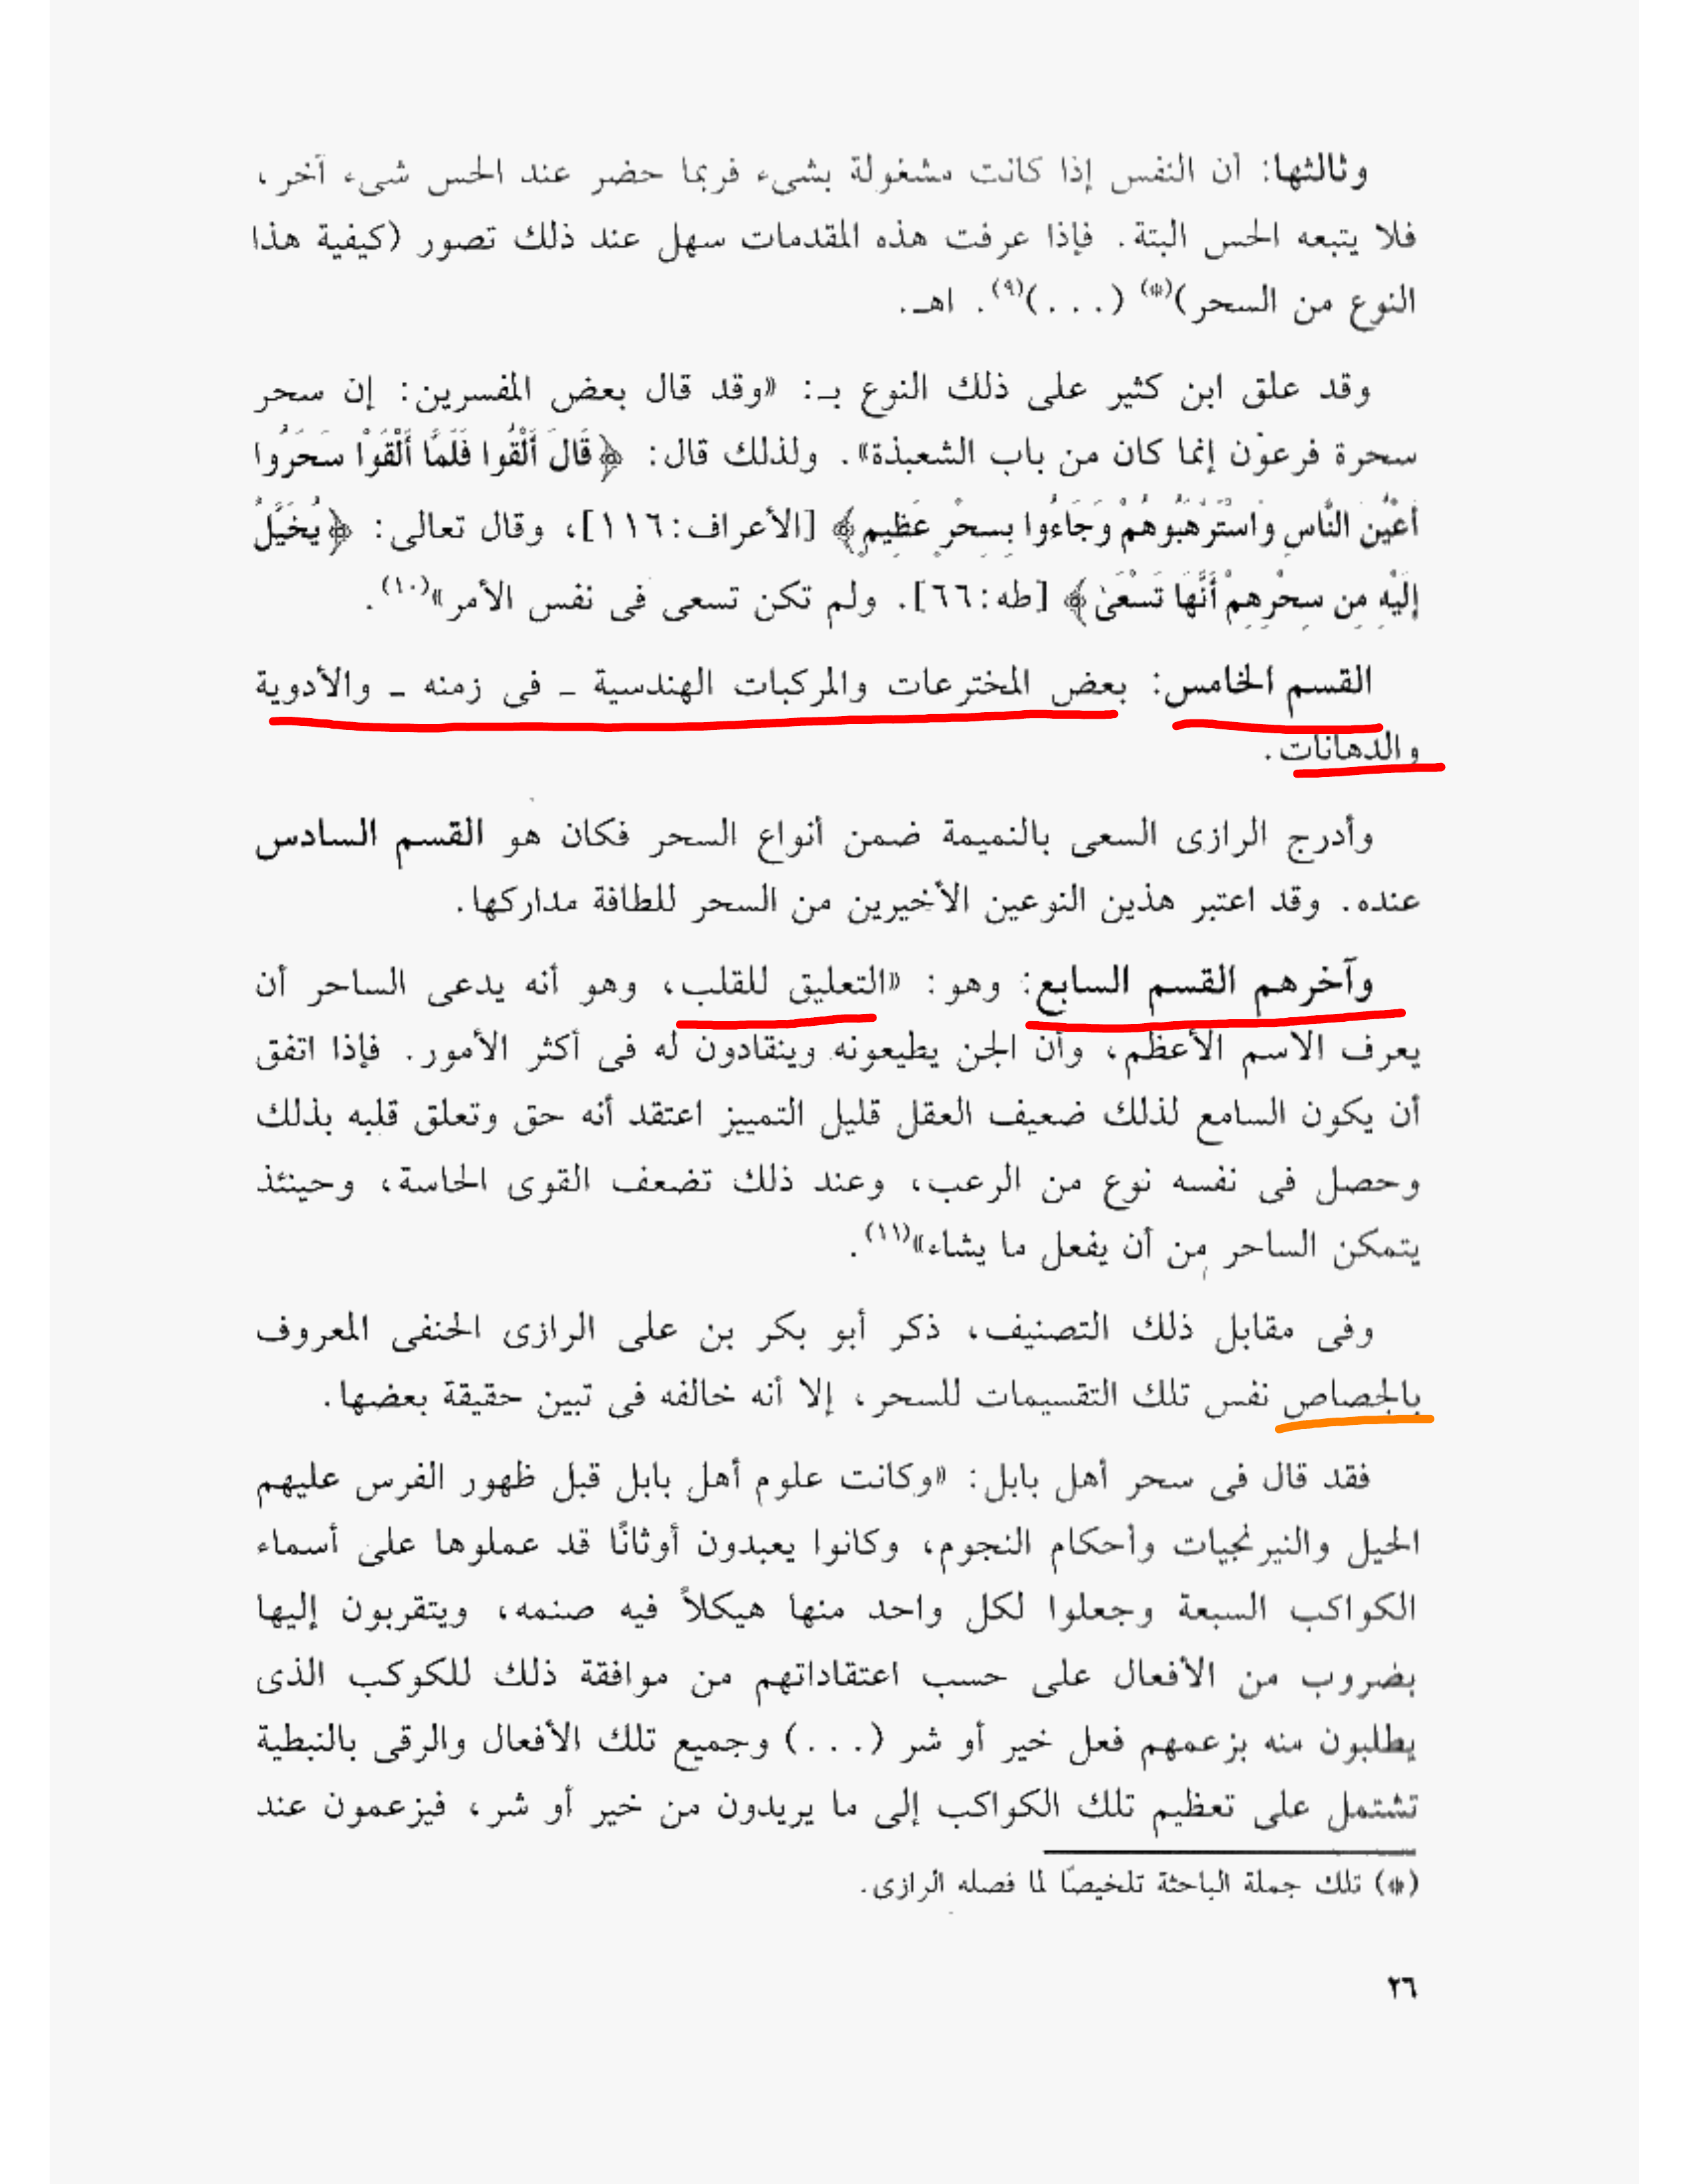 وثالثها: أن النفس إذا كانت مشغولة بشىء فربما حضر عند الحس شىء آخر،
فلا يتبعه الحس البتة. فإذا عرفت هذه المقدمات سهل عند ذلك تصور (كيفية هذا
النوع من السحر)(*) (...)(٩). اهـ.
وقد علق ابن كثير على ذلك النوع بـ: «وقد قال بعض المفسرين: إن سحر
سحرة فرعون إنما كان من باب الشعبذة». ولذلك قال: ﴿قَالَ أَلْقُوا فَلَمَّا أَلْقَوْا سَحَرُوا
أَعْيُنَ النَّاسِ وَاسْتَرْهَبُوهُمْ وَجَاءُوا بِسِحْرٍ عَظِيمٍ﴾ [الأعراف:١١٦]، وقال تعالى: ﴿يُخَيَّلُ
إِلَيْهِ مِن سِحْرِهِمْ أَنَّهَا تَسْعَىٰ﴾ [طه:٦٦]. ولم تكن تسعى فى نفس الأمر»(١٠).
القسم الخامس: بعض المخترعات والمركبات الهندسية ـ فى زمنه ـ والأدوية
والدهانات.
وأدرج الرازى السعى بالنميمة ضمن أنواع السحر فكان هو القسم السادس
عنده. وقد اعتبر هذين النوعين الأخيرين من السحر للطافة مداركها.
وآخرهم القسم السابع: وهو: «التعليق للقلب، وهو أنه يدعى الساحر أن
يعرف الاسم الأعظم، وأن الجن يطيعونه وينقادون له فى أكثر الأمور. فإذا اتفق
أن يكون السامع لذلك ضعيف العقل قليل التمييز اعتقد أنه حق وتعلق قلبه بذلك
وحصل فى نفسه نوع من الرعب، وعند ذلك تضعف القوى الحاسة، وحينئذ
يتمكن الساحر من أن يفعل ما يشاء»(١١).
وفى مقابل ذلك التصنيف، ذكر أبو بكر بن على الرازى الحنفى المعروف
بالجصاص نفس تلك التقسيمات للسحر، إلا أنه خالفه فى تبين حقيقة بعضها.
فقد قال فى سحر أهل بابل: «وكانت علوم أهل بابل قبل ظهور الفرس عليهم
الحيل والنيرنجيات وأحكام النجوم، وكانوا يعبدون أوثانًا قد عملوها على أسماء
الكواكب السبعة وجعلوا لكل واحد منها هيكلاً فيه صنمه، ويتقربون إليها
بضروب من الأفعال على حسب اعتقاداتهم من موافقة ذلك للكوكب الذى
يطلبون منه بزعمهم فعل خير أو شر (...) وجميع تلك الأفعال والرقى بالنبطية
تشتمل على تعظيم تلك الكواكب إلى ما يريدون من خير أو شر، فيزعمون عند
(*) تلك جملة الباحثة تلخيصًا لما فصله الرازى.
٢٦